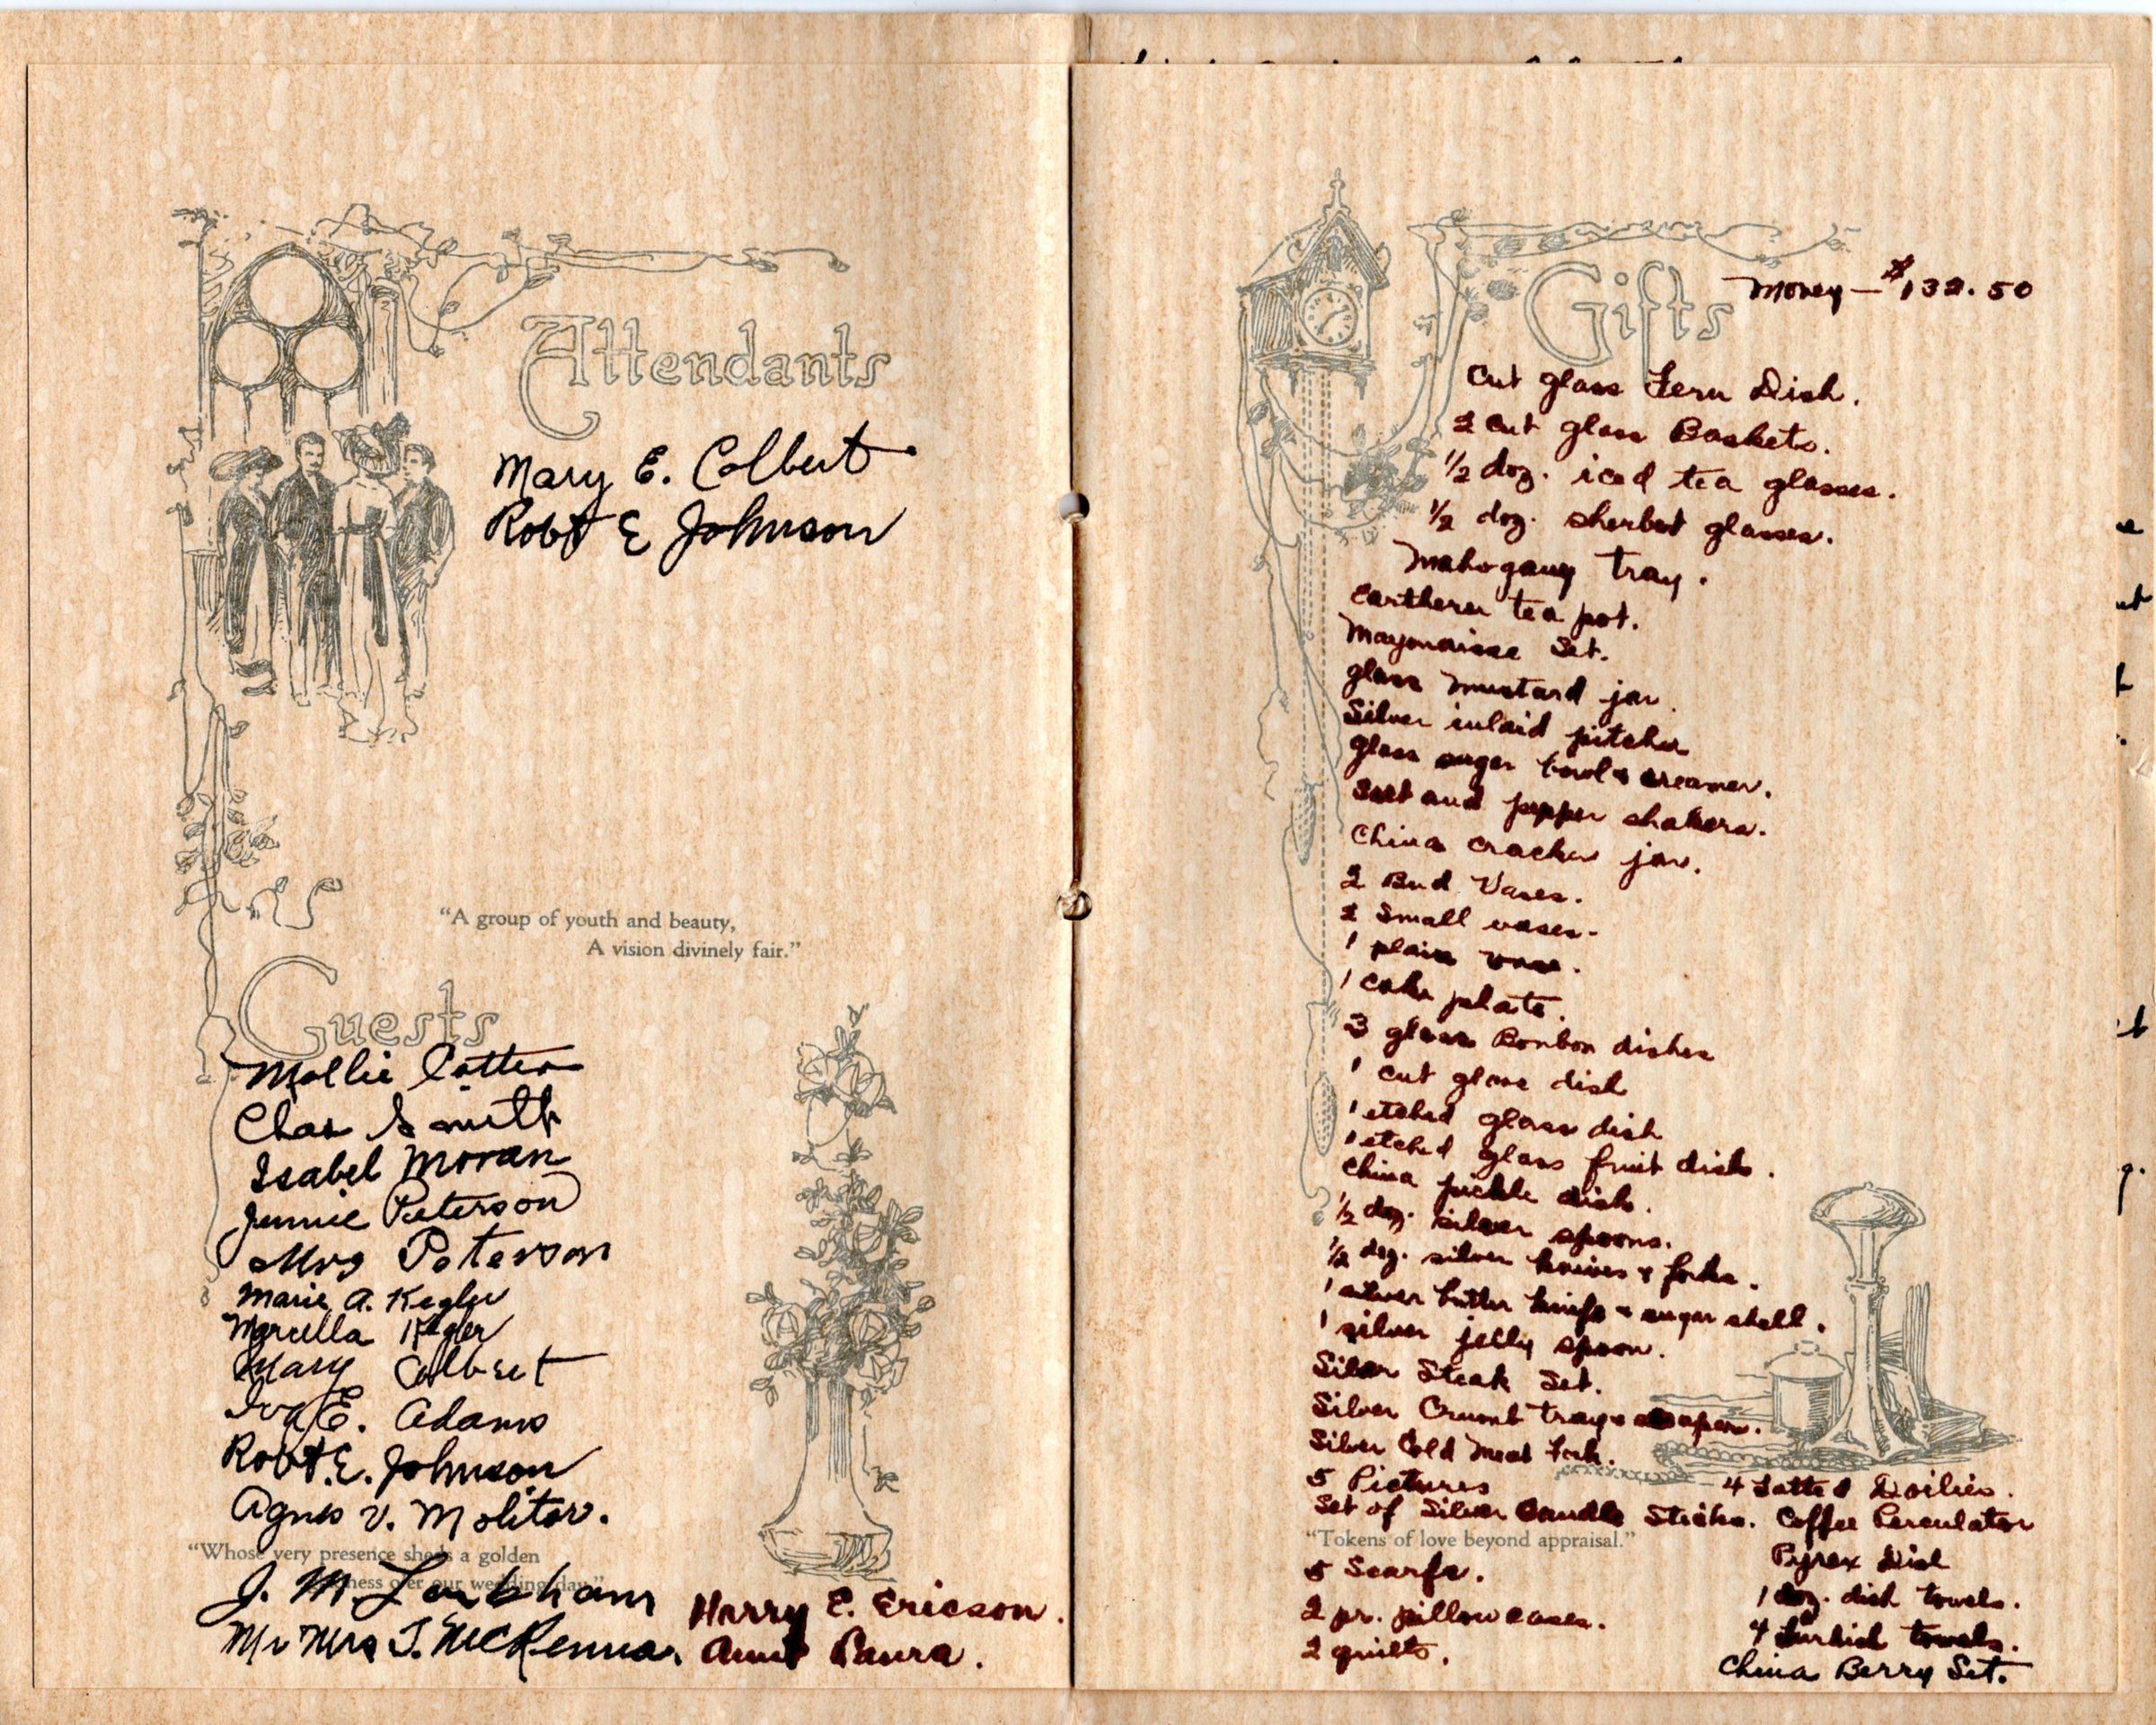 Attendants
Mary E. Colbert
Robt E Johnson
"A group of youth and beauty,
A vision divinely fair."
Guests
Mollie
Chas Smith
Isabel Moran
Jennie Peterson
Mrs Peterson
Marie A. Kegler
Marcella Kegler
Mary Colbert
Iva E. Adams
Robt. E. Johnson
Agnes V. Molitor.
"Whose very presence sheds a golden
our wedding day."
J. M.
Mr Mrs T. McKenna.
Harry E. Ericson.
Aunt Laura.
Gifts
Money — $132.50
Cut glass Fern Dish.
2 cut glass Baskets.
1/2 doz. iced tea glasses.
1/2 doz. sherbert glasses.
Mahogany tray.
Earthern tea pot.
Mayonaisse Set.
glass mustard jar.
Silver inlaid pitcher
glass sugar bowl & creamer.
Salt and pepper shakers.
China cracker jar.
2 Bud Vases.
2 Small vases.
1 plain vase.
1 cake plate.
3 glass Bonbon dishes
1 cut glass dish
1 etched glass dish
1 etched glass fruit dish.
China pickle dish.
1/2 doz. silver spoons.
1/2 doz. silver knives & forks.
1 silver butter knife & sugar shell.
1 silver jelly spoon.
Silver Steak Set.
Silver Crumb tray &
Silver Cold Meat Fork.
5 Pictures
Set of Silver Candle Sticks.
"Tokens of love beyond appraisal."
5 Scarfs.
2 pr. pillow cases.
2 quilts.
4 Tatted Doilies.
Coffee Perculator
Pyrex Dish
1 doz. dish towels.
4 Turkish towels.
China Berry Set.